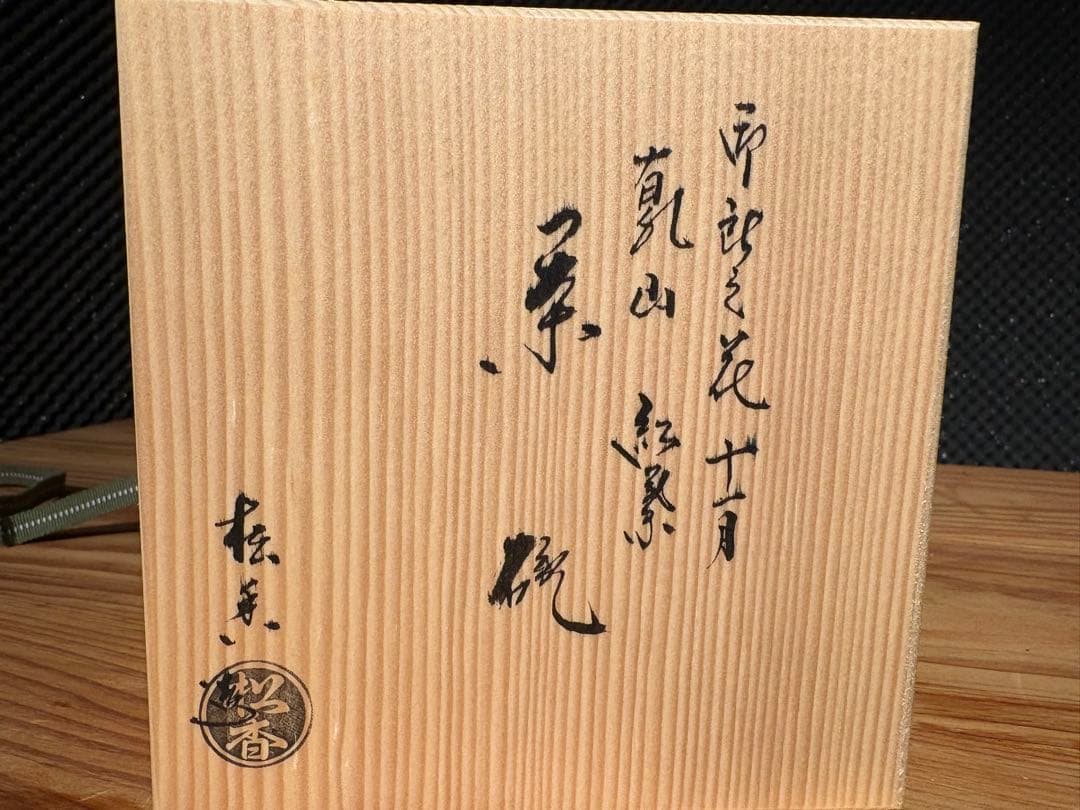 之花 十一月
乾山 紅葉
茶碗
松香 造
松香